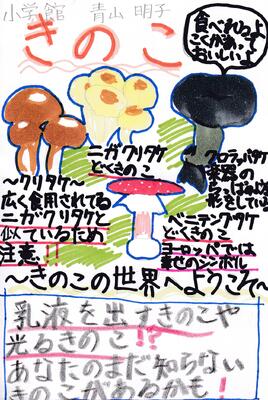 小学館 青山 明子
きのこ
食べれるよ
こくがあって
おいしいよ
ニガクリタケ
どくきのこ
クロラッパタケ
楽器の
らっぱみたいな
形をしている
～クリタケ～
広く食用されてる
ニガクリタケと
似ているため
注意!!
ベニテングタケ
どくきのこ
ヨーロッパでは
幸せのシンボル
～きのこの世界へようこそ～
乳液を出すきのこや
光るきのこ!?
あなたのまだ知らない
きのこがあるかも!